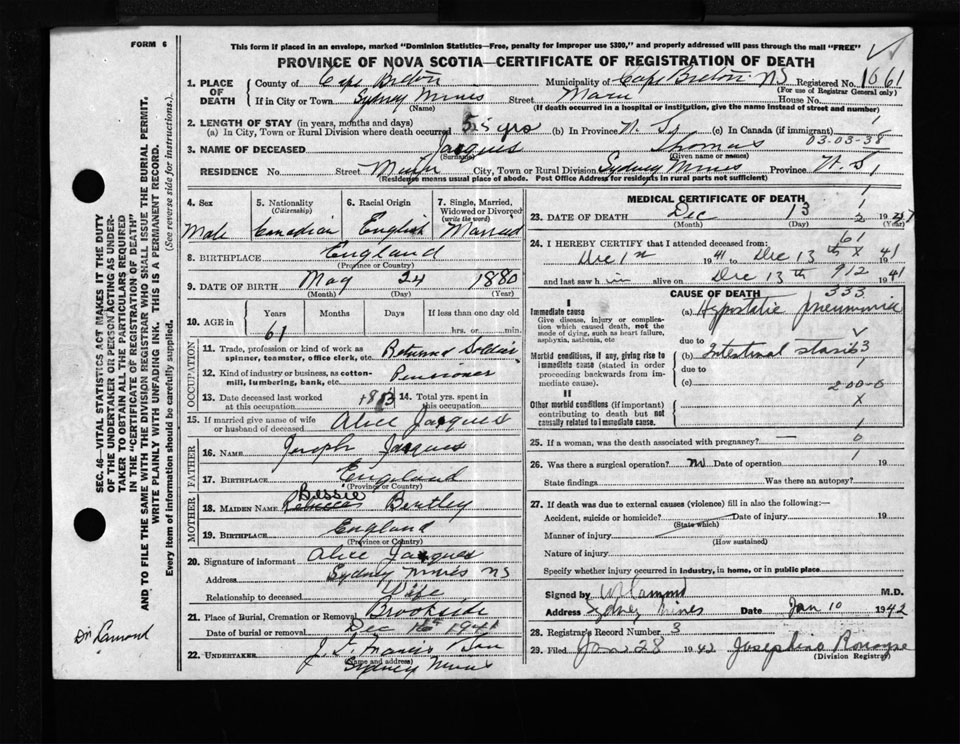 FORM 6
This form if placed in an envelope, marked "Dominion Statistics—Free, penalty for improper use $300," and properly addressed will pass through the mail "FREE"
PROVINCE OF NOVA SCOTIA—CERTIFICATE OF REGISTRATION OF DEATH
1. PLACE OF DEATH County of Cape Breton Municipality of Cape Breton NS Registered No. 1061
(For use of Registrar General only)
If in City or Town Sydney Mines Street Main House No.
(Name) (If death occurred in a hospital or institution, give the name instead of street and number)
2. LENGTH OF STAY (in years, months and days)
(a) In City, Town or Rural Division where death occurred 55 yrs (b) In Province N. S. (c) In Canada (if immigrant)
03-03-38
3. NAME OF DECEASED Jacques Thomas
(Surname) (Given name or names)
RESIDENCE No Street Main City, Town or Rural Division Sydney Mines Province N. S.
(Residence means usual place of abode. Post Office Address for residents in rural parts not sufficient)
4. Sex Male
5. Nationality (Citizenship) Canadian
6. Racial Origin English
7. Single, Married, Widowed or Divorced (write the word) Married
8. BIRTHPLACE England
(Province or Country)
9. DATE OF BIRTH May 24 1880
(Month) (Day) (Year)
10. AGE in Years Months Days If less than one day
61 hrs. or min.
OCCUPATION
11. Trade, profession or kind of work as spinner, teamster, office clerk, etc. Returned Soldier
12. Kind of industry or business, as cotton-mill, lumbering, bank, etc. Pensioner
13. Date deceased last worked at this occupation 14. Total yrs. spent in this occupation
15. If married give name of wife or husband of deceased Alice Jacques
FATHER
16. NAME Joseph Jacques
17. BIRTHPLACE England
(Province or Country)
MOTHER
Bessie
18. MAIDEN NAME Rebecca Bentley
19. BIRTHPLACE England
(Province or Country)
20. Signature of informant Alice Jacques
Address Sydney Mines NS
Relationship to deceased Wife
21. Place of Burial, Cremation or Removal Brookside
Date of burial or removal Dec 16th 1941
22. UNDERTAKER J. T.
(Name and address)
Sydney Mines
MEDICAL CERTIFICATE OF DEATH
23. DATE OF DEATH Dec 13 19
(Month) (Day) (Year)
24. I HEREBY CERTIFY that I attended deceased from:
61
Dec 1st 1941 to Dec 13th x 1941
and last saw h im alive on Dec 13th 912 1941
CAUSE OF DEATH
333
I
Immediate cause
Give disease, injury or complication which caused death, not the mode of dying, such as heart failure, asphyxia, asthenia, etc
(a) Hypostatic pneumonia
due to
Morbid conditions, if any, giving rise to immediate cause (stated in order proceeding backwards from immediate cause).
(b) Intestinal stasis 3
due to
(c)
200-0
x
II
Other morbid conditions (if important) contributing to death but not causally related to immediate cause.
25. If a woman, was the death associated with pregnancy? — 0
26. Was there a surgical operation? Date of operation 19
State findings Was there an autopsy?
27. If death was due to external causes (violence) fill in also the following:—
Accident, suicide or homicide? Date of injury 19
(State which)
Manner of injury
(How sustained)
Nature of injury
Specify whether injury occurred in industry, in home, or in public place
Signed by Lamond M.D.
Address Sydney Mines Date Jan 10 1942
28. Registrar's Record Number 3
29. Filed Jan 28 1942 Josephine
(Division Registrar)
SEC. 46—VITAL STATISTICS ACT MAKES IT THE DUTY
OF THE UNDERTAKER OR PERSON ACTING AS UNDER-
TAKER TO OBTAIN ALL THE PARTICULARS REQUIRED
IN THE "CERTIFICATE OF REGISTRATION OF DEATH"
AND TO FILE THE SAME WITH THE DIVISION REGISTRAR WHO SHALL ISSUE THE BURIAL PERMIT.
WRITE PLAINLY WITH UNFADING INK. THIS IS A PERMANENT RECORD.
Every item of information should be carefully supplied. (See reverse side for instructions.)
Dr Lamond